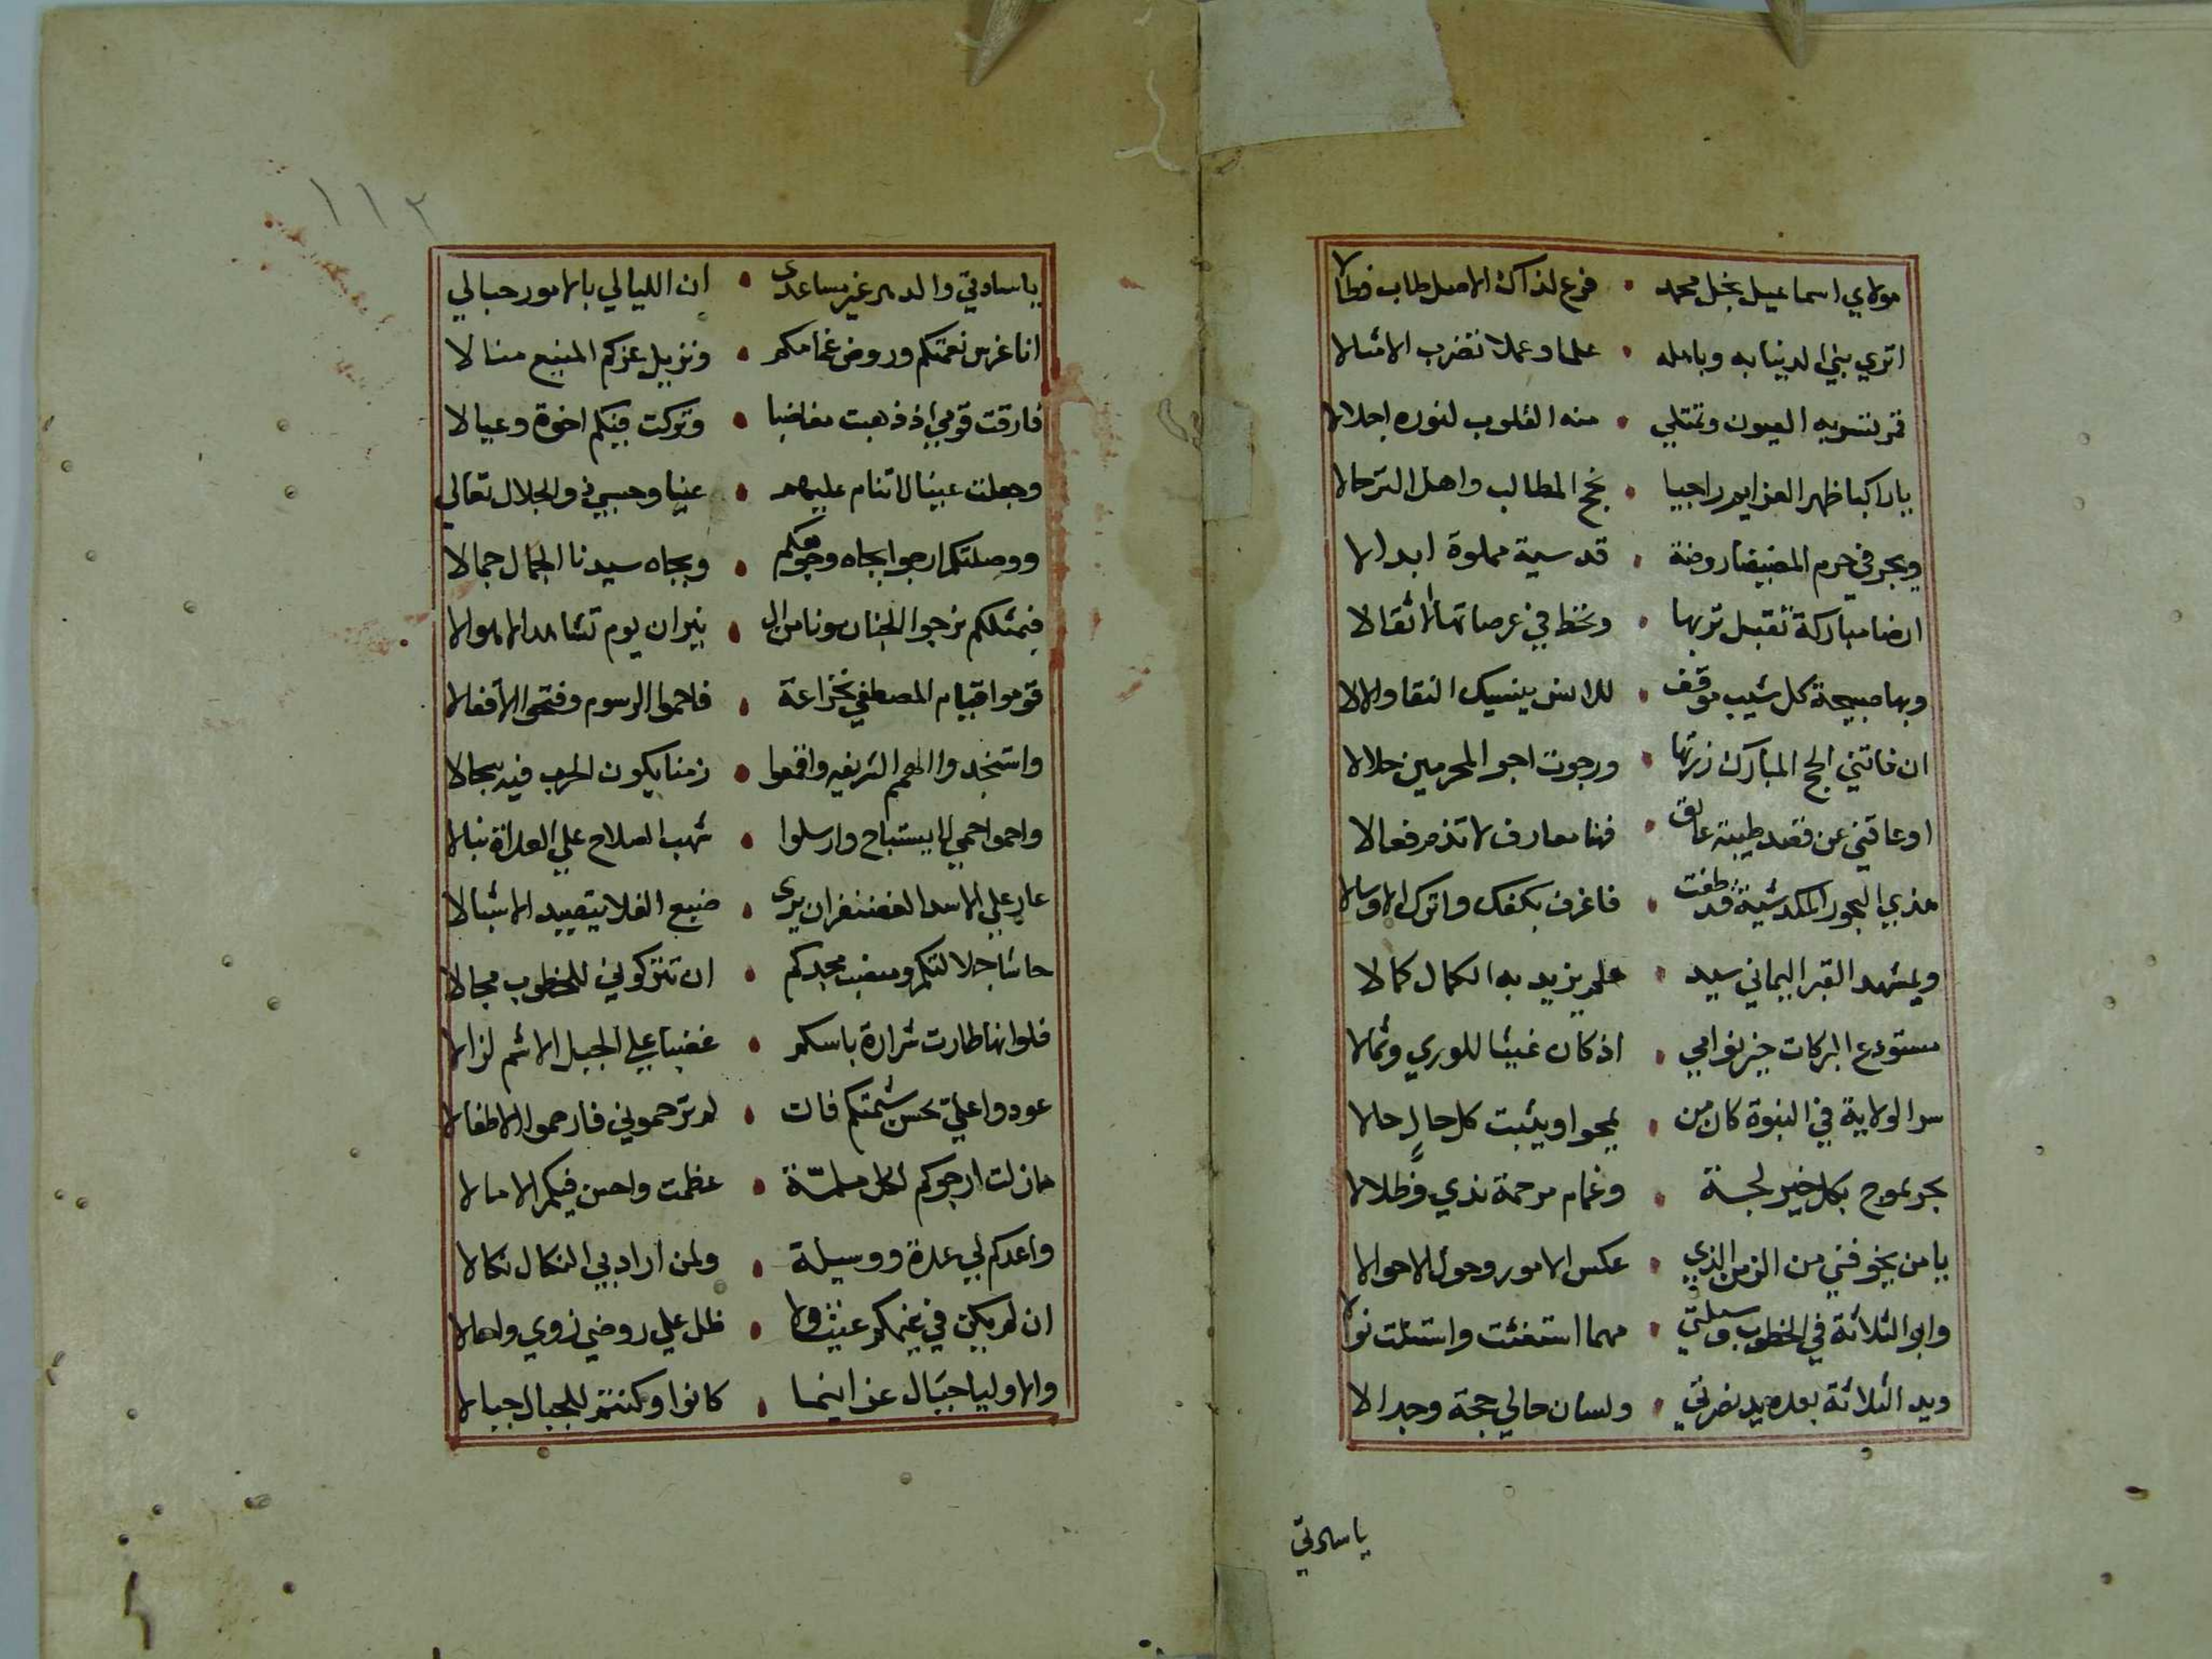 مولاي اسماعيل نجل محمد • فرع لذاك الاصل طاب فطالا
اثري بني الدنيا به وباهله • علما وعملا تضرب الامثالا
قمر تسر به العيون وتمتلي • منه القلوب لنوره اجلالا
ياراكبا ظهر العزايم راجيا • نجح المطالب واصل الترحالا
في حرم روضة • قدسية مملوة ابدالا
ارضا مباركة تقبل تربها • وتحط في عرصاتها الاثقالا
وبها صبيحة كل شيب موقف • للانس ينسيك النقا والالا
ان فاتني الحج المبارك زرتها • ورجوت اجر المحرمين حلالا
او عاقني عن قصد طيبة عائق • فهنا معارف لا تذم فعالا
هذي البحور المكدشية قد طفت • فاغرف بكفك واترك الاوشالا
وبمشهد القبر اليماني سيد • علم يزيد به الكمال كمالا
مستودع البركات خير نوامي • اذ كان غيثا للوري وثمالا
سر الولاية في النبوة كان من • يمحوا ويثبت كل حالٍ حالا
بحر يموج بكل خير لجة • وغمام مرحمة ندي وظلالا
يا من يخوفني من الزمن الذي • عكس الامور وحول الاحوالا
وابو الثلاثة في الخطوب وسيلتي • مهما استغثت واستنلت نوالا
ويد الثلاثة بعده يد نصرتي • ولسان حالي حجة وجدالا
ياسادتي
١١٢
ياسادتي والدهر غير مساعدى • ان الليالي بالامور حبالي
انا غرس نعمتكم وروض غمامكم • ونزيل عزكم المنيع منالا
فارقت قومي إذ ذهبت مغاضبا • وتركت فيكم اخوة وعيالا
وجعلت عينا لا تنام عليهم • عنيا وحسبي ذو الجلال تعالي
ووصلتكم ارجوا بجاه وجوهكم • وبجاه سيدنا الجمال جمالا
فبمثلكم نرجوا الجنان ونامن ال • نيران يوم تشاهد الاهوالا
قوموا قيام المصطفي بخزاعة • فاحموا الرسوم وفتحوا الأقفالا
واستنجدوا الهمم الشريفه واقمعوا • زمنا يكون الحرب فيه سجالا
واحموا حمي لا يستباح وارسلوا • شهب الصلاح علي العداة نبالا
عار علي الاسد الغضنفر ان يرى • ضبع الفلا يتصيد الاشبالا
حاشا جلالتكم ومنصب مجدكم • ان تتركوني للخطوب مجالا
فلو انها طارت شرارة باسكم • غضبا علي الجبل الاشم لزالا
عودوا علي بحسن شيمتكم فان • لم ترحموني فارحموا الاطفالا
مازلت ارجوكم لكل ملمّة • عظمت واحسن فيكم الامالا
واعدكم لي عدة ووسيلة • ولمن اراد بي النكال نكالا
ان لم يكن في غيمكم غيث ولا • ظل علي روضي زوي واهالا
والاوليا جبال عز اينما • كانوا وكنتم للجبال جبالا